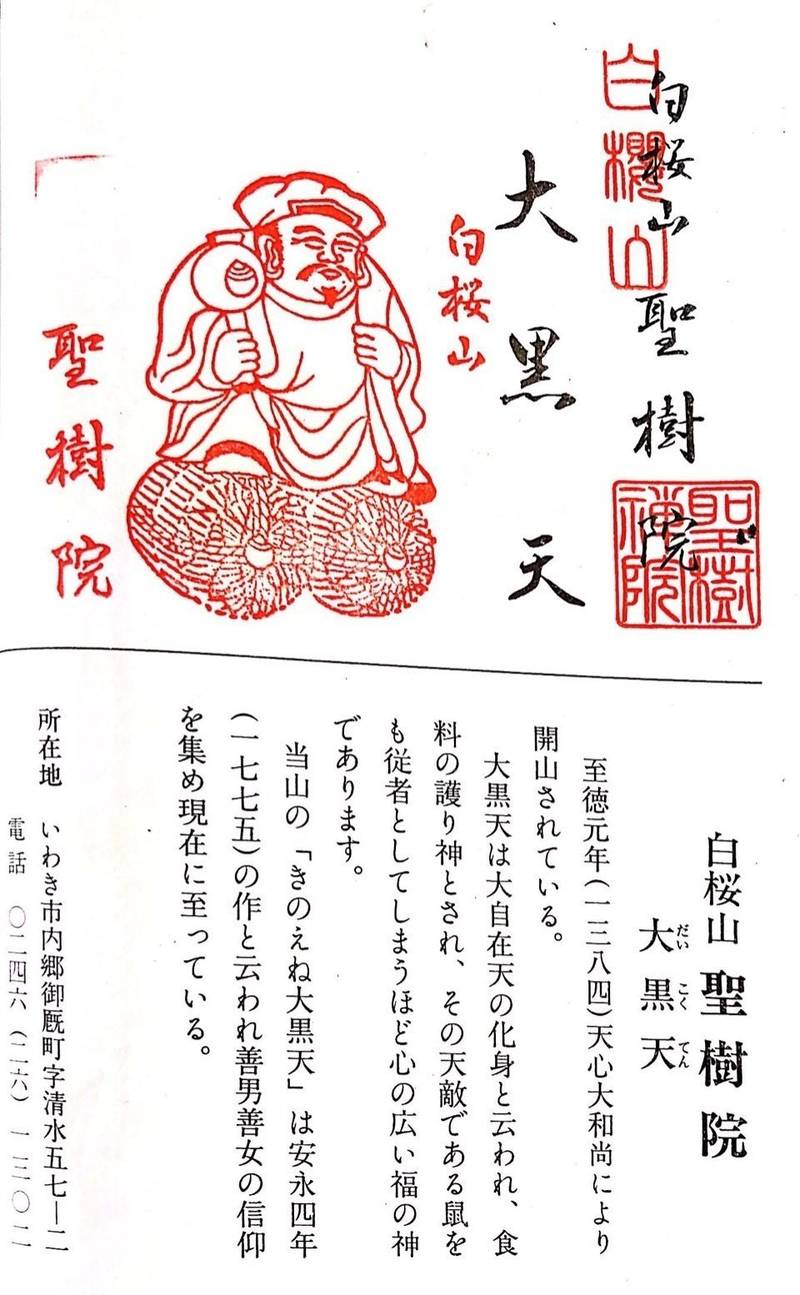 白桜山聖樹院
白櫻山
聖樹
禅院
大黒天
白桜山
聖樹院
白桜山 聖樹院
大黒天
だいこくてん
至徳元年(一三八四)天心大和尚により
開山されている。
大黒天は大自在天の化身と云われ、食
料の護り神とされ、その天敵である鼠を
も従者としてしまうほど心の広い福の神
であります。
当山の「きのえね大黒天」は安永四年
(一七七五)の作と云われ善男善女の信仰
を集め現在に至っている。
所在地 いわき市内郷御厩町字清水五七―二
電話 〇二四六(二六)一三〇二